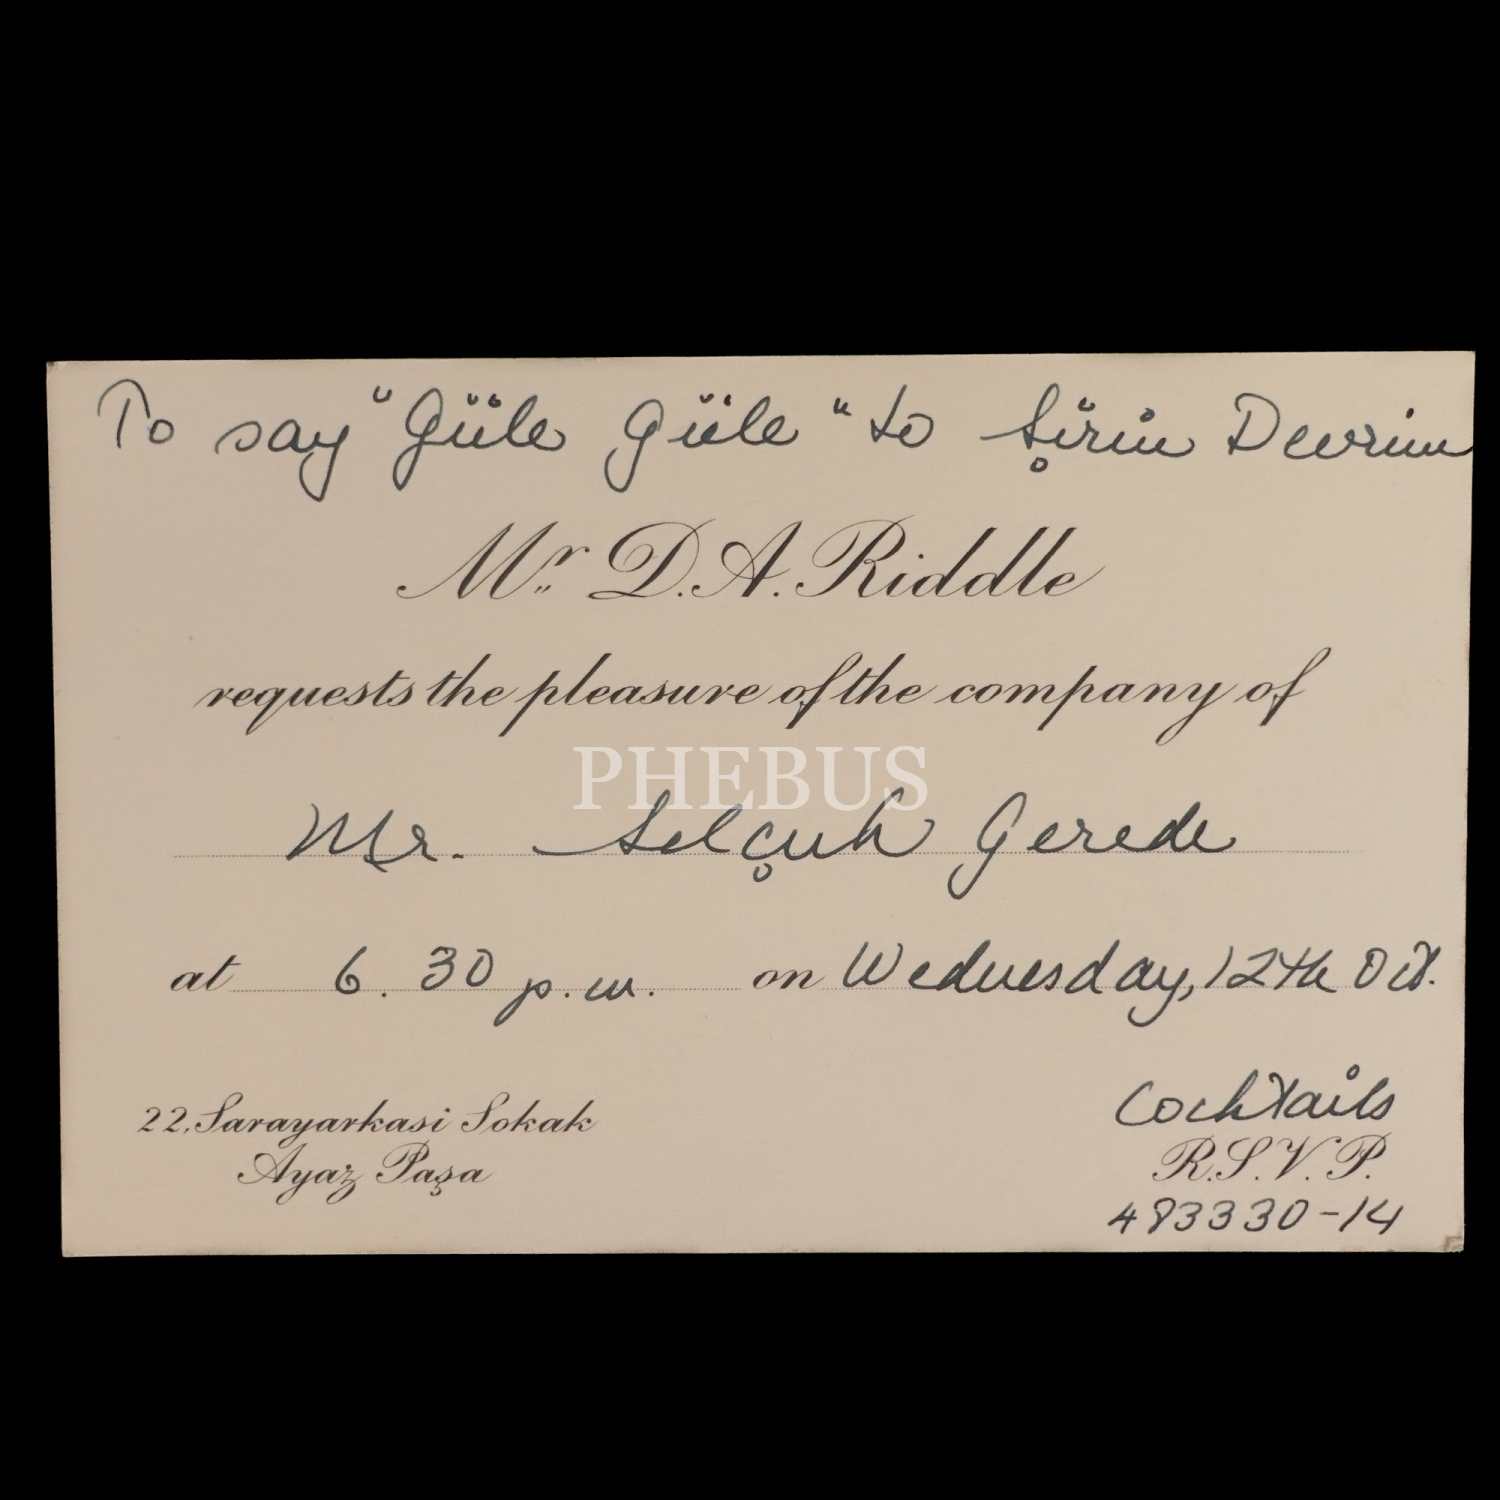 To say "Güle Güle" to Şirin Devrim
Mr. D. A. Riddle
requests the pleasure of the company of
PHEBUS
Mr. Selçuk Gerede
at 6.30 p.m. on Wednesday, 12th Oct.
Cocktails
22, Sarayarkasi Sokak
Ayaz Paşa
R.S.V.P.
483330-14